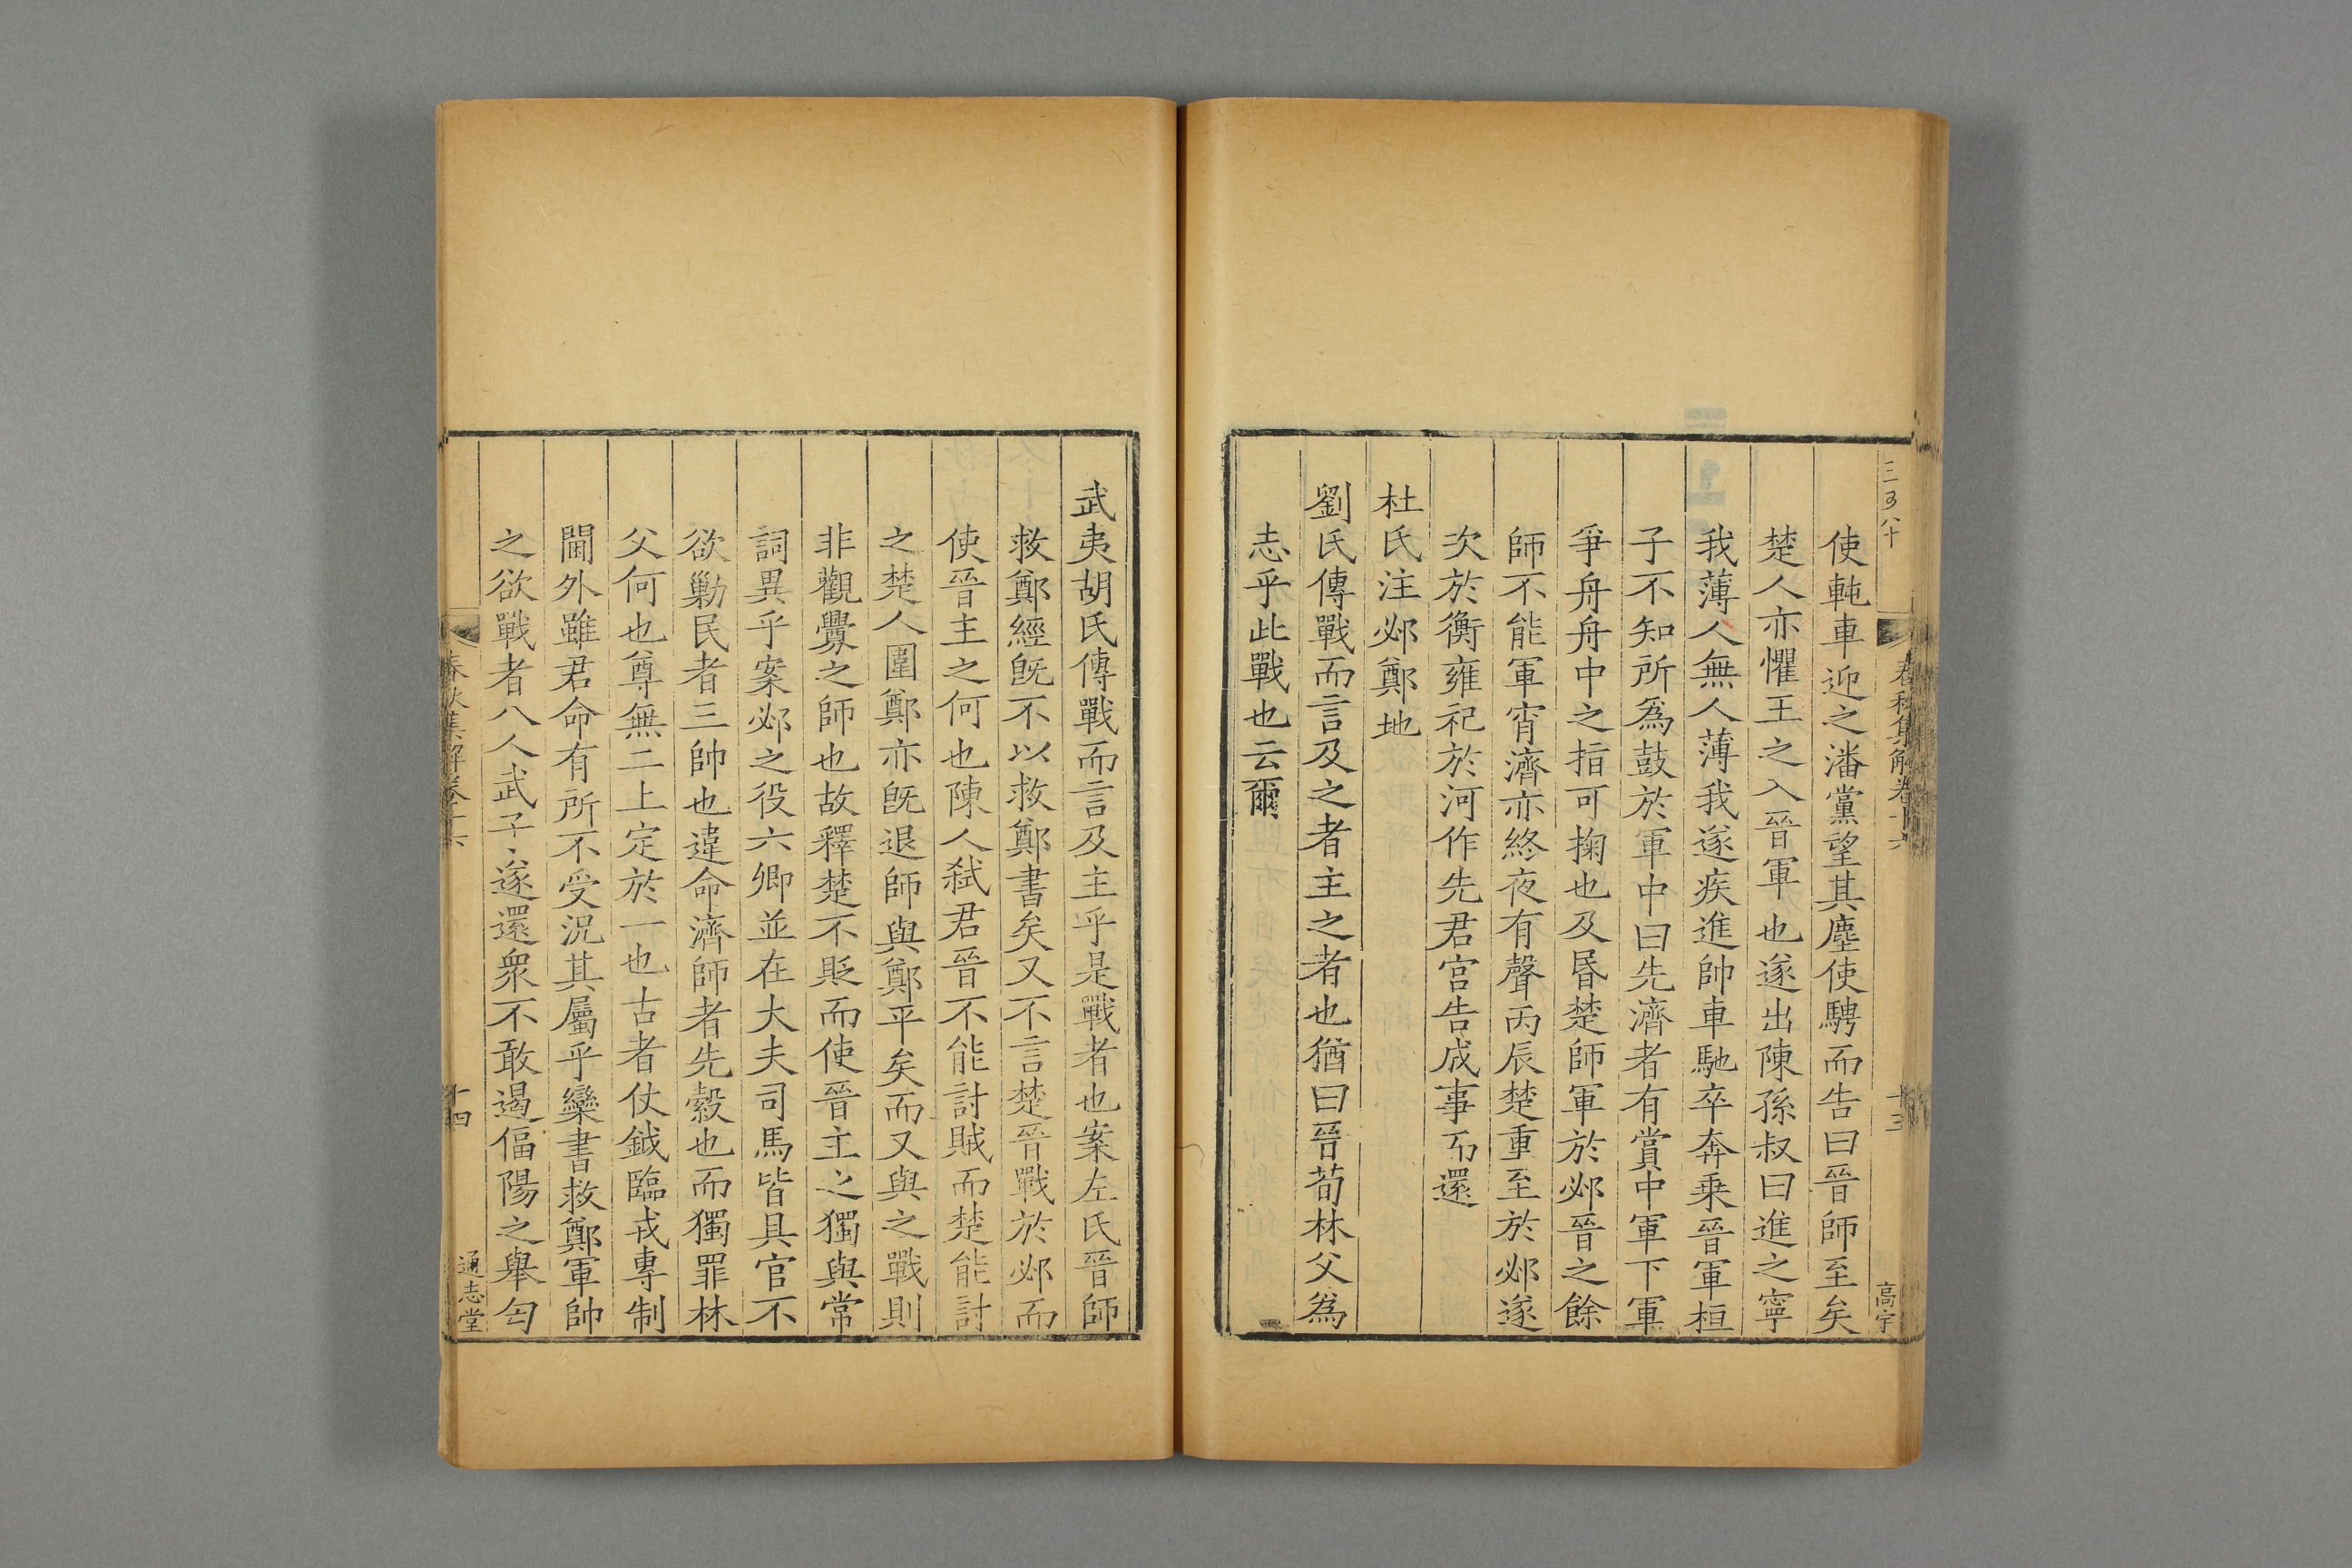 三百八十
春秋集解卷十六
十三
高宇
使軘車迎之潘黨望其塵使騁而告曰晉師至矣
楚人亦懼王之入晉軍也遂出陳孫叔曰進之寧
我薄人無人薄我遂疾進帥車馳卒奔乗晉軍桓
子不知所爲鼓於軍中曰先濟者有賞中軍下軍
爭舟舟中之指可掬也及昬楚師軍於邲晉之餘
師不能軍宵濟亦終夜有聲丙辰楚重至於邲遂
次於衡雍祀於河作先君宫告成事而還
杜氏注邲鄭地
劉氏傳戰而言及之者主之者也猶曰晉荀林父爲
志乎此戰也云爾
武夷胡氏傳戰而言及主乎是戰者也案左氏晉師
救鄭經旣不以救鄭書矣又不言楚晉戰於邲而
使晉主之何也陳人弑君晉不能討賊而楚能討
之楚人圍鄭亦旣退師與鄭平矣而又與之戰則
非觀釁之師也故釋楚不貶而使晉主之獨與常
詞異乎案邲之役六卿並在大夫司馬皆具官不
欲勦民者三帥也違命濟師者先縠也而獨罪林
父何也尊無二上定於一也古者仗鉞臨戎專制
閫外雖君命有所不受況其屬乎欒書救鄭軍帥
之欲戰者八人武子遂還衆不敢遏偪陽之舉匄
春秋集解卷十六
十四
通志堂